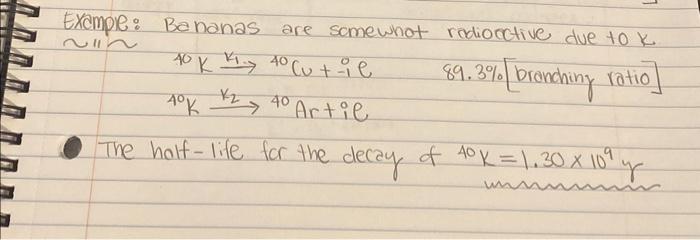 Example: Bananas are somewhat radioactive due to K.
⁴⁰K —K₁→ ⁴⁰Cu + ⁰₋₁e 89.3% [branching ratio]
⁴⁰K —K₂→ ⁴⁰Ar + ⁰₁e
• The half-life for the decay of ⁴⁰K = 1.30 x 10⁹ y